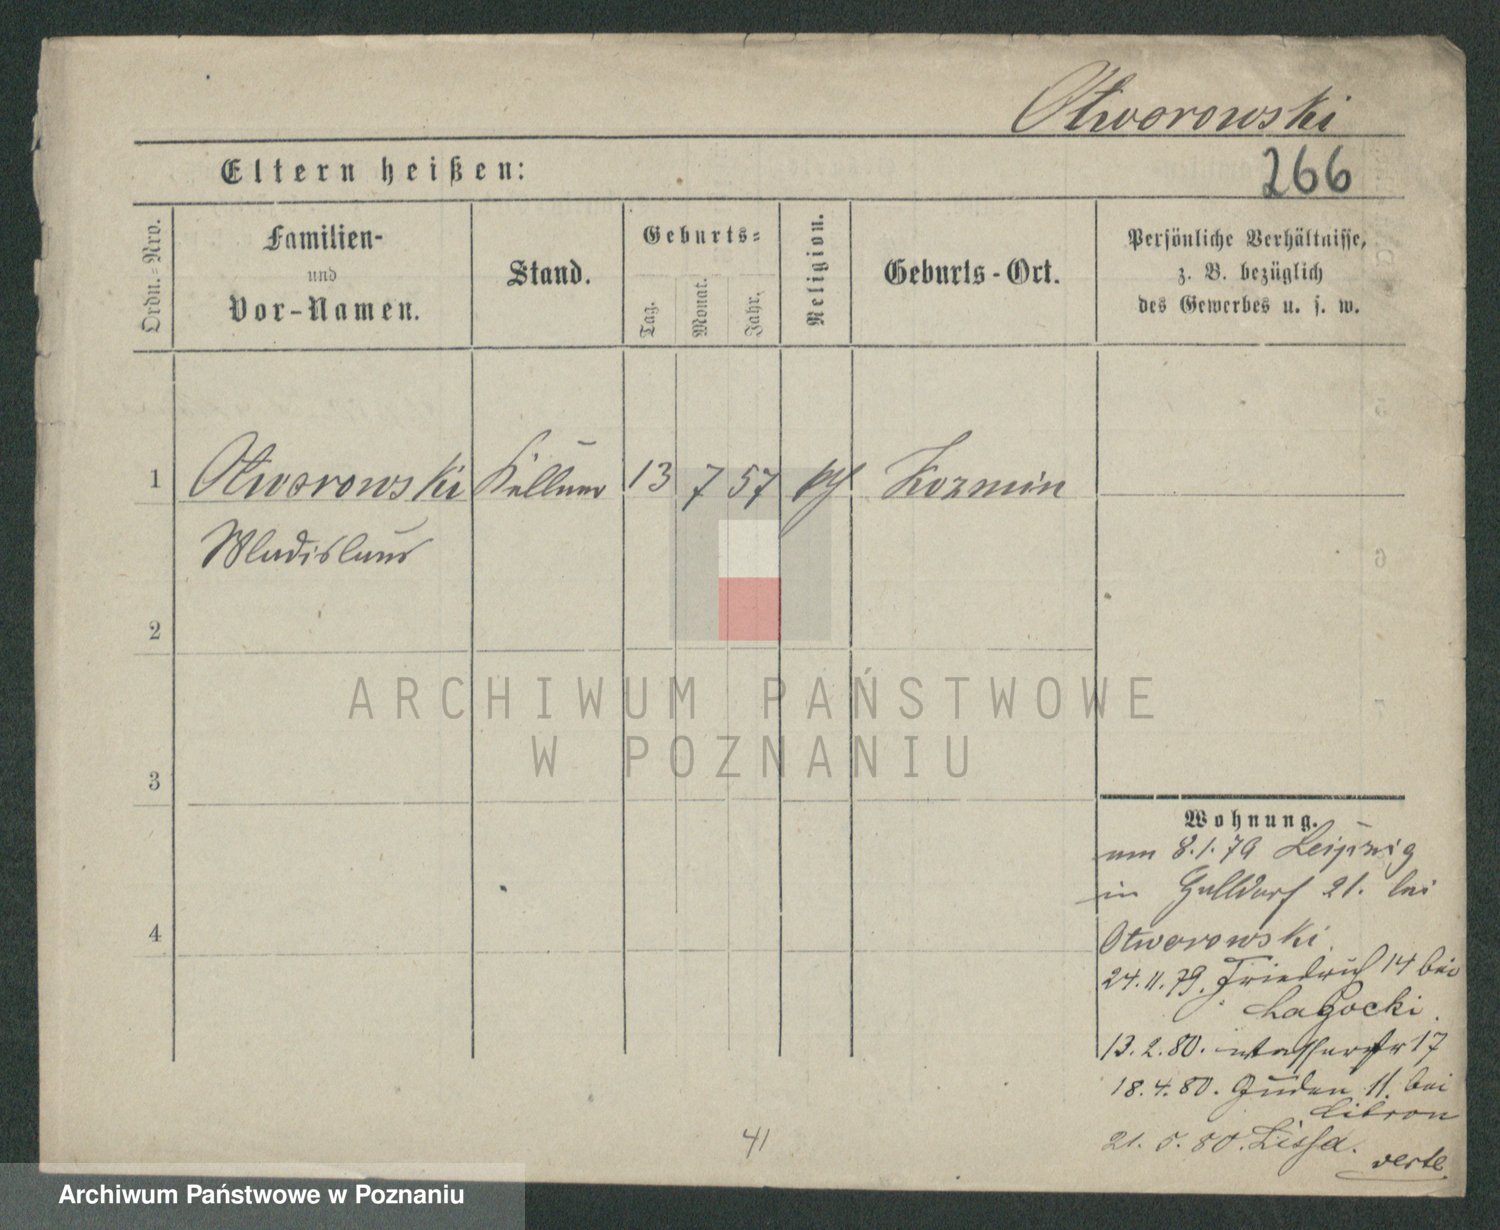 Otworowski
266
Eltern heißen:
Ordn.=Nro.
Familien-
und
Vor-Namen.
Stand.
Geburts=
Tag.
Monat.
Jahr.
Religion.
Geburts-Ort.
Persönliche Verhältnisse,
z. B. bezüglich
des Gewerbes u. s. w.
1 Otworowski Kellner 13 7 57 kth Kozmin
Wladislaus
2
3
4
ARCHIWUM PAŃSTWOWE
W POZNANIU
Wohnung.
8.1.79 Leipzig
in 21. bei
Otworowski.
24.11.79. Friedrich 14 bei
13.2.80. Wasserstr 17
18.4.80. Juden 11. bei
21.5.80. Lissa.
verte
41
Archiwum Państwowe w Poznaniu